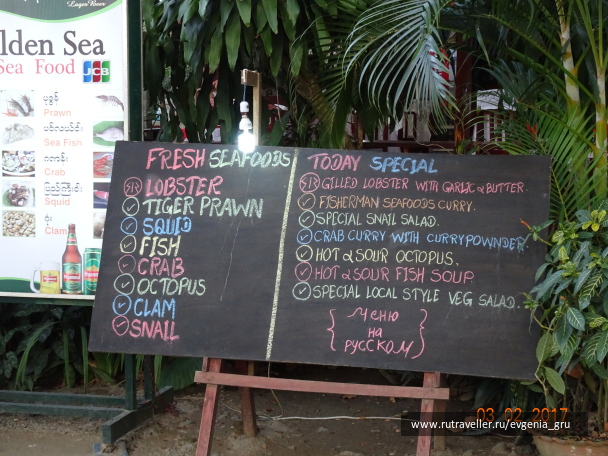 Lager Beer
lden Sea
Sea Food JCB
ပုစွန်
Prawn
Sea Fish
ဂဏန်း
Crab
Squid
Clam
FRESH SEAFOODS
LOBSTER
TIGER PRAWN
SQUID
FISH
CRAB
OCTOPUS
CLAM
SNALL
TODAY SPECIAL
GILLED LOBSTER WITH GARLIC & BUTTER.
FISHERMAN SEAFOODS CURRY.
SPECIAL SNAIL SALAD.
CRAB CURRY WITH CURRYPOWNDER.
HOT & SOUR OCTOPUS.
HOT & SOUR FISH SOUP
SPECIAL LOCAL STYLE VEG SALAD.
Меню
на
русском
03 02 2017
www.rutraveller.ru/evgenia_gru